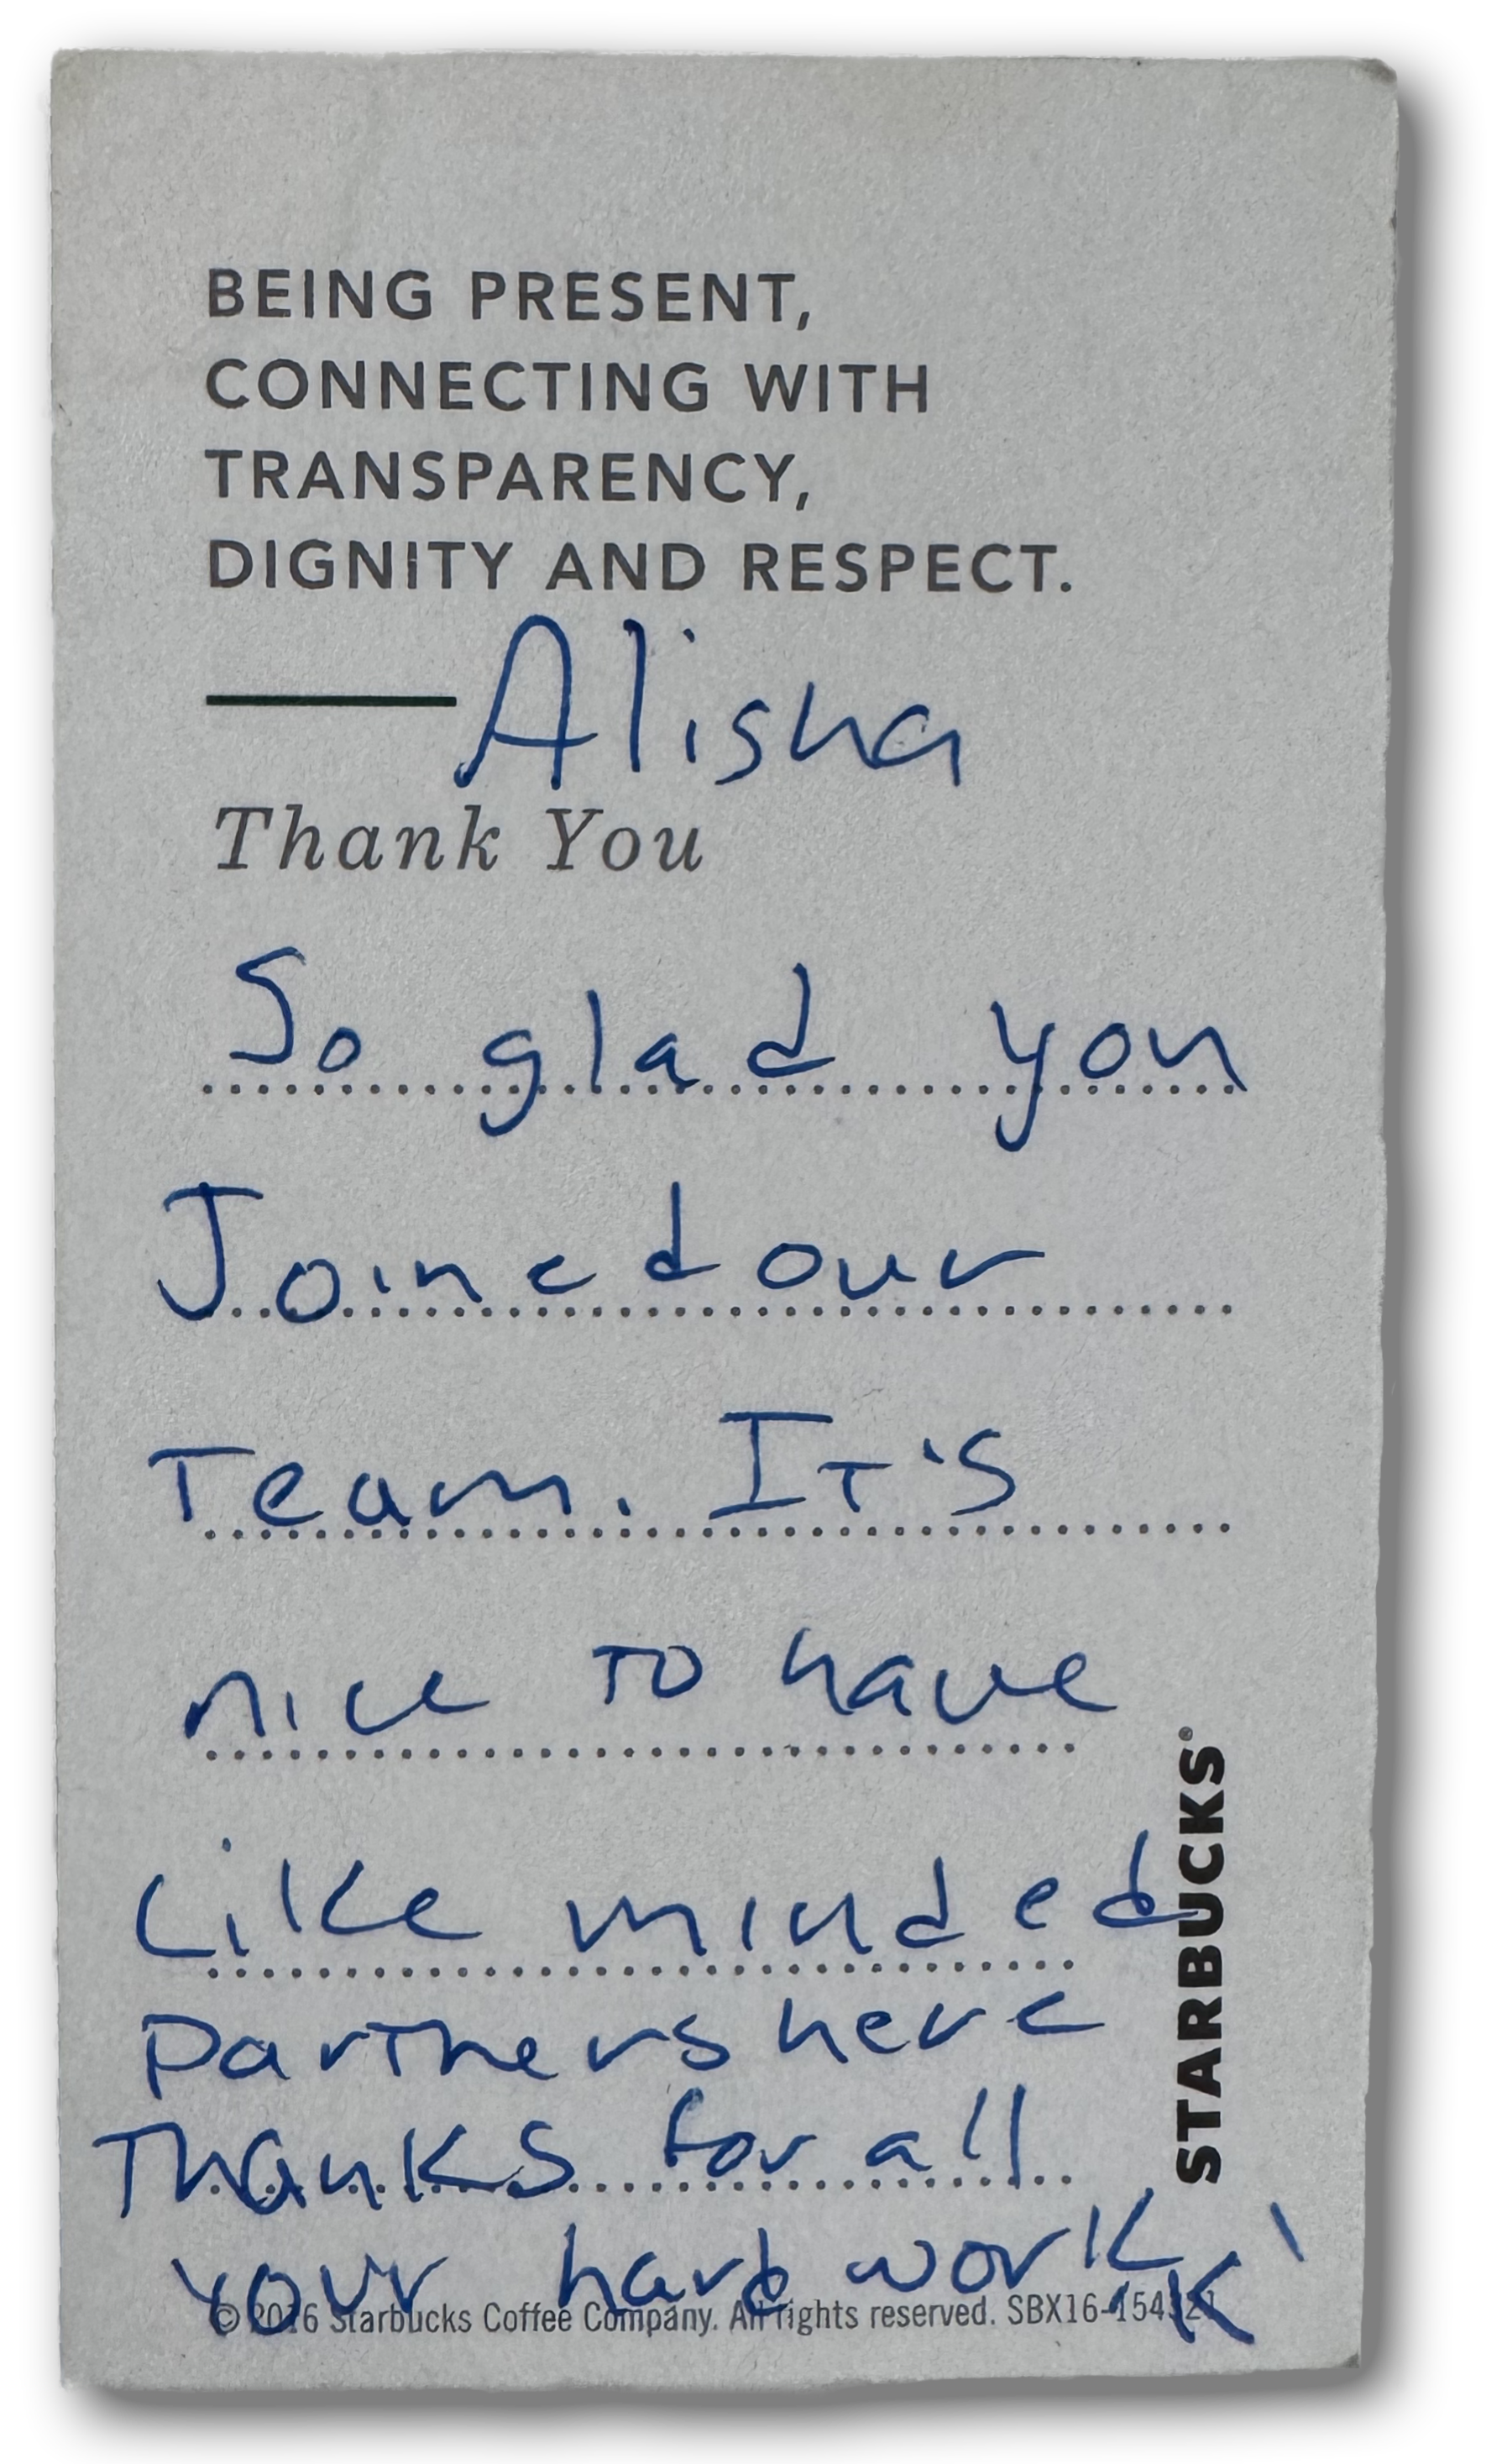 BEING PRESENT,
CONNECTING WITH
TRANSPARENCY,
DIGNITY AND RESPECT.
Alisha
Thank You
So glad you
Joined our
Team. It's
nice to have
Like minded
partners here
Thanks for all
your hard work!
K
STARBUCKS®
© 2016 Starbucks Coffee Company. All rights reserved. SBX16-154321